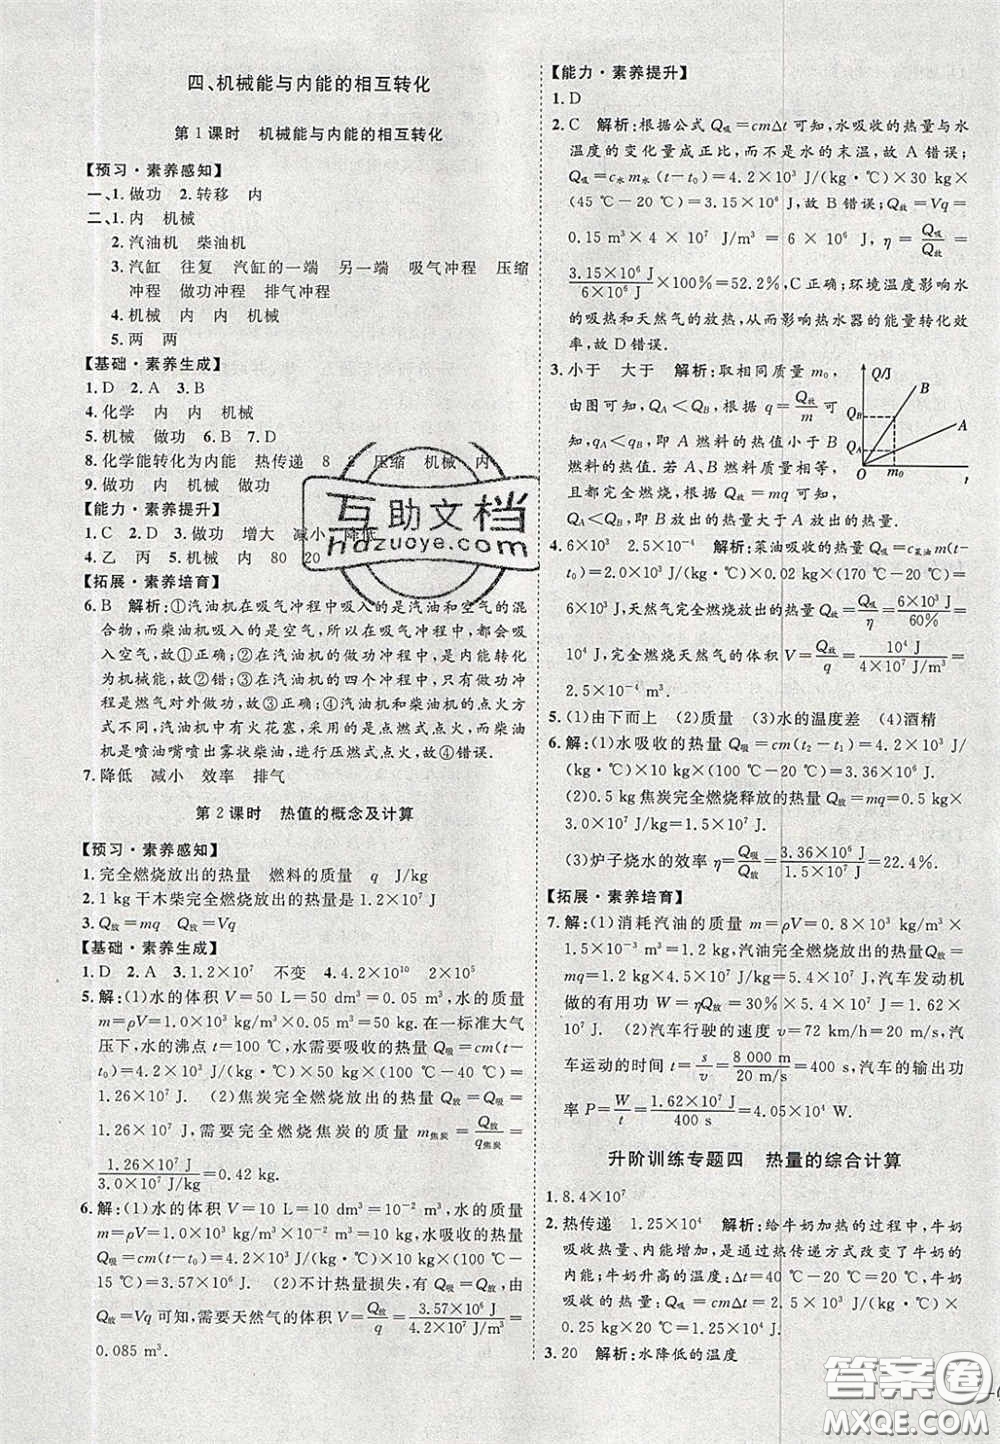 四、机械能与内能的相互转化
第1课时 机械能与内能的相互转化
【预习·素养感知】
一、1.做功 2.转移 内
二、1.内 机械
2.汽油机 柴油机
3.汽缸 往复 汽缸的一端 另一端 吸气冲程 压缩
冲程 做功冲程 排气冲程
4.机械 内 内 机械
5.两 两
【基础·素养生成】
1.D 2.A 3.B
4.化学 内 内 机械
5.机械 做功 6.B 7.D
8.化学能转化为内能 热传递 8 2 压缩 机械 内
9.做功 内 机械 做功
【能力·素养提升】
1.C 2.D 3.做功 增大 减小 降低
4.乙 丙 5.机械 内 80 20
【拓展·素养培育】
6.B 解析:①汽油机在吸气冲程中吸入的是汽油和空气的混
合物,而柴油机吸入的是空气,所以吸气冲程中,都会有空气
吸入汽缀,故①正确;②在汽油机的做功冲程中,是内能转化
为机械能,故②错;③在汽油机的四个冲程中,只有做功冲程
是燃气对外做功,故③正确;④汽油机和柴油机的点火方式
不同,汽油机中有火花塞,采用的是点燃式点火,而柴油
机是喷油嘴喷出雾状柴油,进行压燃式点火,故④错误。
7.降低 减小 效率 排气
第2课时 热值的概念及计算
【预习·素养感知】
1.完全燃烧放出的热量 燃料的质量 q J/kg
2.1 kg干木柴完全燃烧放出的热量是1.2×10⁷ J
3.Q放=mq Q放=Vq
【基础·素养生成】
1.D 2.A 3.1.2×10⁷ 不变 4.4.2×10¹⁰ 2×10⁵
5.解:(1)水的体积V=50 L=50 dm³=0.05 m³,水的质量
m=ρV=1.0×10³ kg/m³×0.05 m³=50 kg。在一标准大气
压下,水的沸点t=100 ℃,水需要吸收的热量Q吸=cm(t-
t₀)=4.2×10³ J/(kg·℃)×50 kg×(100 ℃-40 ℃)=
1.26×10⁷ J。 (2)焦炭完全燃烧放出的热量Q放=Q吸=
1.26×10⁷ J,需要完全燃烧焦炭的质量m焦炭=Q放/q焦炭=
1.26×10⁷ J/3.0×10⁷ J/kg=0.42 kg。
6.解:(1)水的体积V=10 L=10 dm³=1×10⁻² m³,水的质量
m=ρV=1.0×10³ kg/m³×1×10⁻² m³=10 kg,水吸收的热量
Q吸=cm(t-t₀)=4.2×10³ J/(kg·℃)×10 kg×(100 ℃-
15 ℃)=3.57×10⁶ J。 (2)不计热量损失,有Q吸=Q放,由Q放=Vq可知,需要天然气的体积V=Q放/q=3.57×10⁶ J/4.2×10⁷ J/m³=
0.085 m³。
【能力·素养提升】
1.D
2.C 解析:根据公式Q吸=cmΔt可知,水吸收的热量与水
温度的变化量成正比,而不是水的末温,故A错误;
Q吸=c水m水(t-t₀)=4.2×10³ J/(kg·℃)×30 kg×
(45 ℃-20 ℃)=3.15×10⁶ J,故B错误;Q放=Vq=
0.15 m³×4×10⁷ J/m³=6×10⁶ J,η=Q吸/Q放=
3.15×10⁶ J/6×10⁶ J×100%=52.2%,C正确;环境温度影响水
的吸热和天然气的放热,从而影响热水器的能量转化效
率,故D错误。
3.小于 大于 解析:取相同质量m₀,
由图可知,Q_A<Q_B,根据q=Q放/m可
知,q_A<q_B,故A燃料的热值小于B
燃料的热值。若A、B燃料质量相等,
且都完全燃烧,根据Q放=mq可知,B
燃料放出的热量大于A放出的热量。
Q/J B Q_B A Q_A O m₀
4.6×10³ 2.5×10⁻⁴ 解析:菜油吸收的热量Q吸=c菜油m(t-
t₀)=2.0×10³ J/(kg·℃)×0.02 kg×(170 ℃-20 ℃)=
6×10³ J,天然气完全燃烧放出的热量Q放=Q吸/η=6×10³ J/60%=
10⁴ J,完全燃烧天然气的体积V=Q放/q=10⁴ J/4×10⁷ J/m³=
2.5×10⁻⁴ m³。
5.(1)由下而上 (2)质量 (3)水的温度差 (4)酒精
6.解:(1)水吸收的热量Q吸=cm(t₂-t₁)=4.2×10³ J/
(2)0.5 kg焦炭完全燃烧释放的热量Q放=mq=0.5 kg×
3.0×10⁷ J/kg=1.5×10⁷ J。
(3)炉子烧水的效率η=Q吸/Q放=3.36×10⁶ J/1.5×10⁷ J=22.4%。
【拓展·素养培育】
7.解:(1)消耗汽油的质量m=ρV=0.8×10³ kg/m³×
1.5×10⁻³ m³=1.2 kg,汽油完全燃烧放出的热量Q放=
mq=1.2 kg×4.5×10⁷ J/kg=5.4×10⁷ J,汽车发动机
做的有用功W=ηQ放=30%×5.4×10⁷ J=1.62×
10⁷ J。 (2)汽车行驶的速度v=72 km/h=20 m/s,汽
车运动的时间t=s/v=8 000 m/20 m/s=400 s,汽车的输出功
率P=W/t=1.62×10⁷ J/400 s=4.05×10⁴ W。
升阶训练专题四 热量的综合计算
1.8.4×10⁷
2.热传递 1.25×10⁴ 解析:给牛奶加热的过程中,牛奶
吸收热量、内能增加,是通过热传递方式改变了牛奶的
内能;牛奶升高的温度:Δt=40 ℃-20 ℃=20 ℃,牛奶
吸收的热量:Q吸=cmΔt=2.5×10³ J/(kg·℃)×
0.25 kg×20 ℃=1.25×10⁴ J。
3.20 解析:水降低的温度
互助文档
hdzuoye.com
答案圈
MXQE.COM